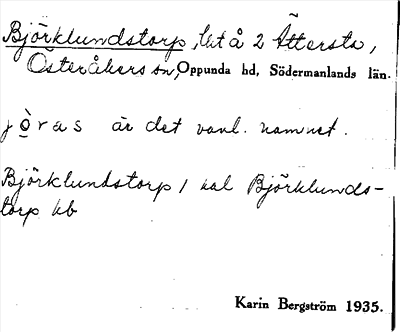 Björklundstorp, lht å 2 Ättersta,
Österåkers sn, Oppunda hd, Södermanlands län.
jòras är det vanl. namnet.
Björklundstorp 1 kal Björklunds-
torp kb
Karin Bergström 1935.